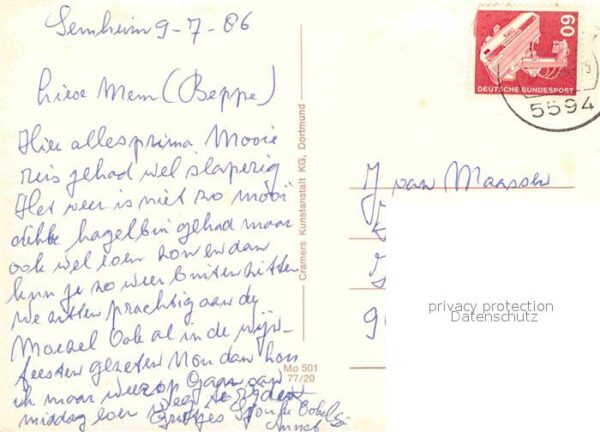 Senheim 9-7-86
Lieve Mem (Beppe)
Hier alles prima. Mooie
reis gehad wel slaperig
Het weer is niet zo mooi
dikke hagelbui gehad maar
ook wel weer zon en dan
kun je zo weer buiten zitten
we zitten prachtig aan de
Moezel Ook al in de wijn-
feesten gezeten Nou dan kon
ik maar weer op gaan van
middag weer
Groetjes
Cramers Kunstanstalt KG, Dortmund
Mo 501
77/20
60
DEUTSCHE BUNDESPOST
5594
J van Maassen
9
privacy protection
Datenschutz